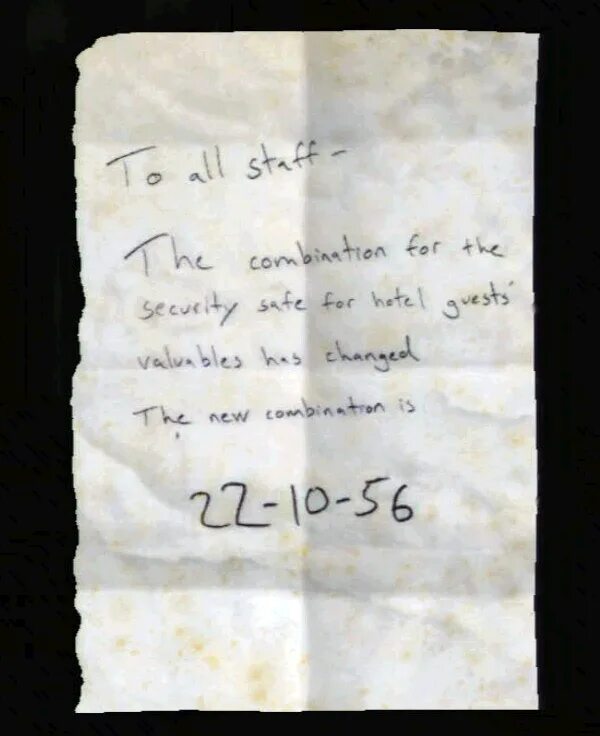 To all staff-
The combination for the
security safe for hotel guests'
valuables has changed
The new combination is
22-10-56